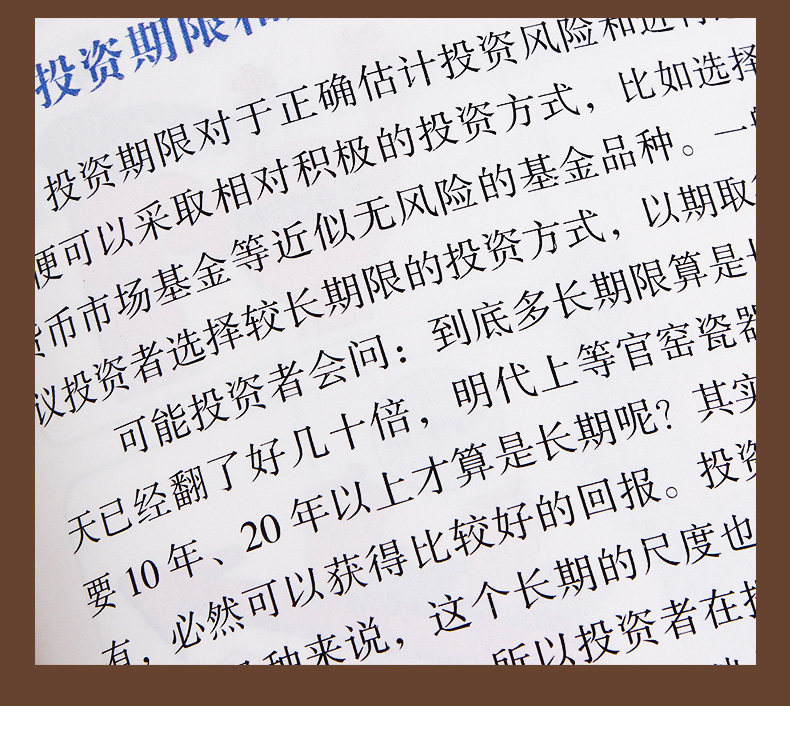 投资期限和
投资期限对于正确估计投资风险和进行
便可以采取相对积极的投资方式，比如选择
货币市场基金等近似无风险的基金品种。一般
议投资者选择较长期限的投资方式，以期取
可能投资者会问：到底多长期限算是长
天已经翻了好几十倍，明代上等官窑瓷器
要10年、20年以上才算是长期呢？其实
有，必然可以获得比较好的回报。投资
种来说，这个长期的尺度也
所以投资者在投